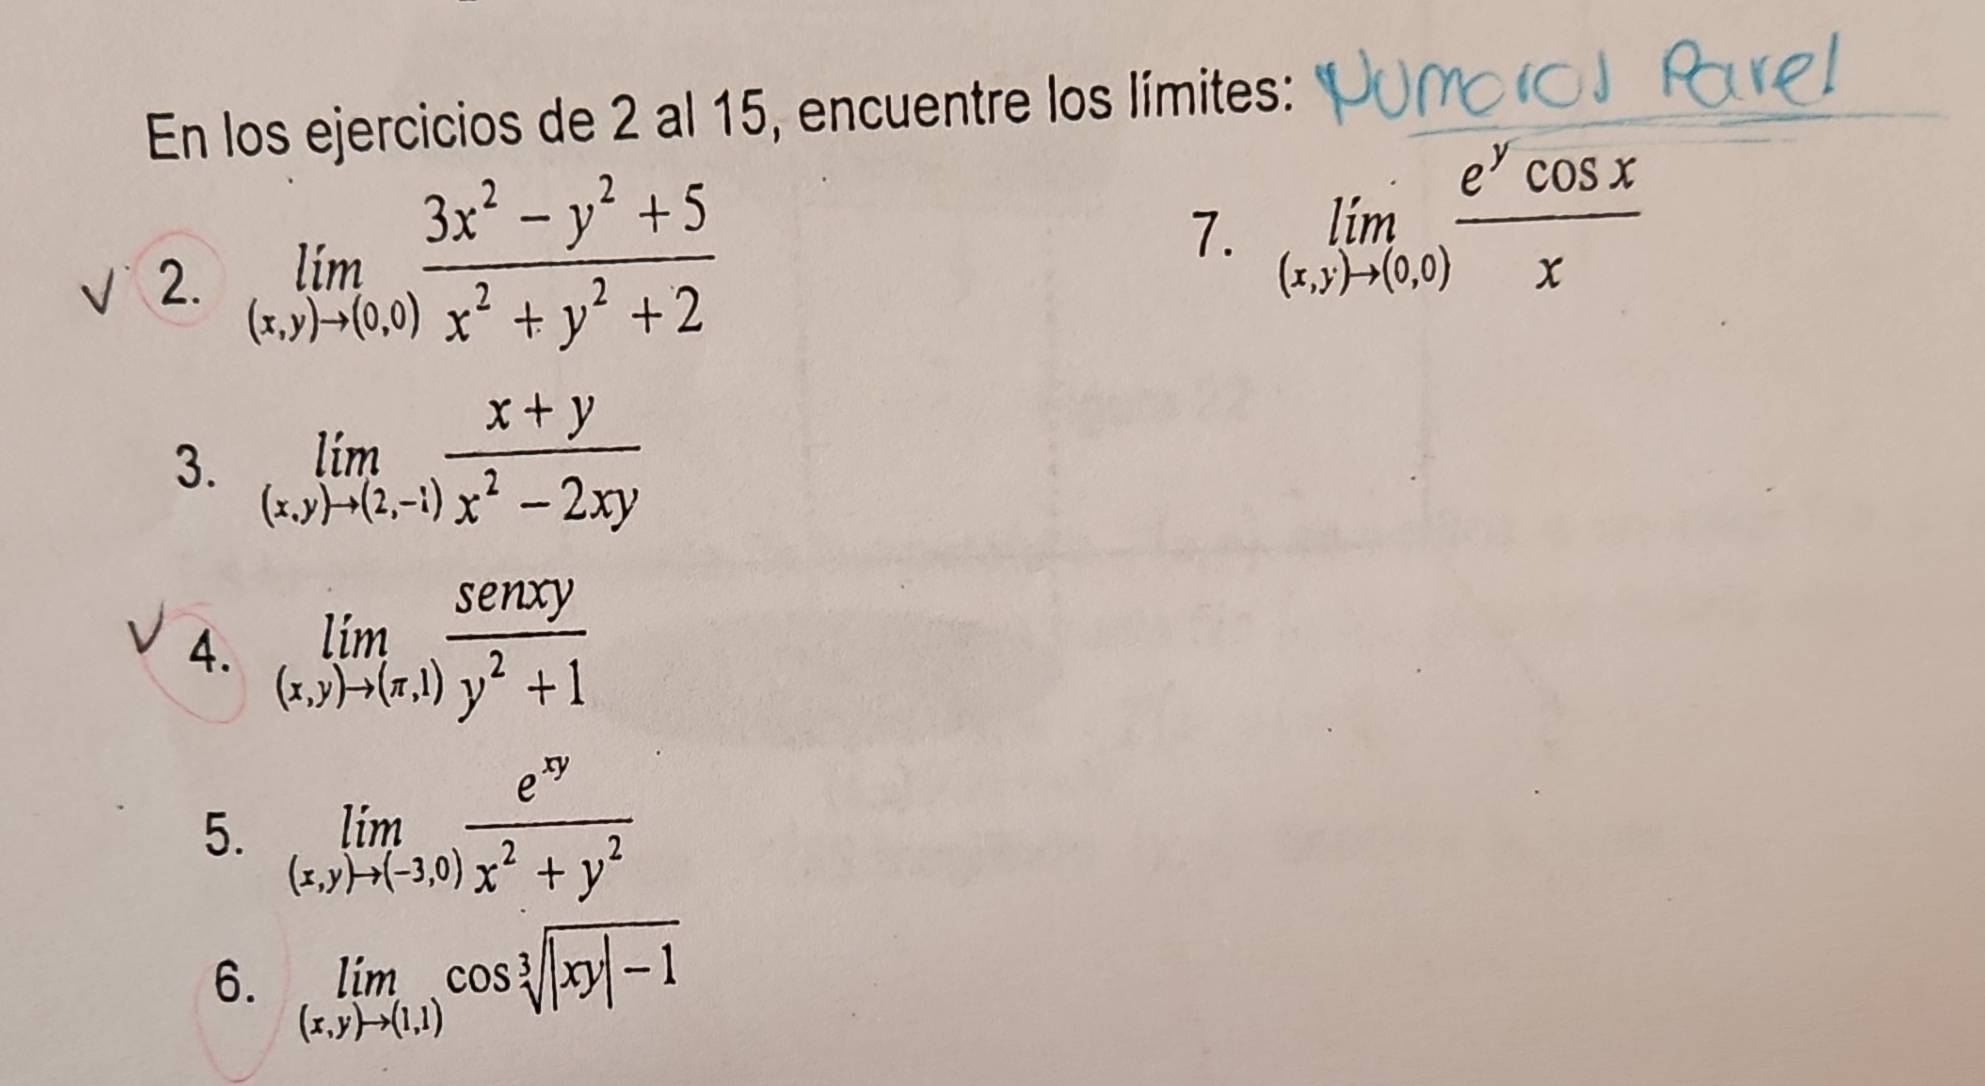 En los ejercicios de 2 al 15, encuentre los límites: Numeros Pares
2. lím (x,y)→(0,0) (3x² − y² + 5)/(x² + y² + 2)
3. lím (x,y)→(2,-1) (x + y)/(x² − 2xy)
4. lím (x,y)→(π,1) senxy/(y² + 1)
5. lím (x,y)→(-3,0) e^xy/(x² + y²)
6. lím (x,y)→(1,1) cos ∛(|xy| − 1)
7. lím (x,y)→(0,0) (e^y cos x)/x